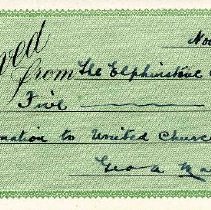 Nov
ved
from The Elphinstone
Five
nation to United Church
Geo A